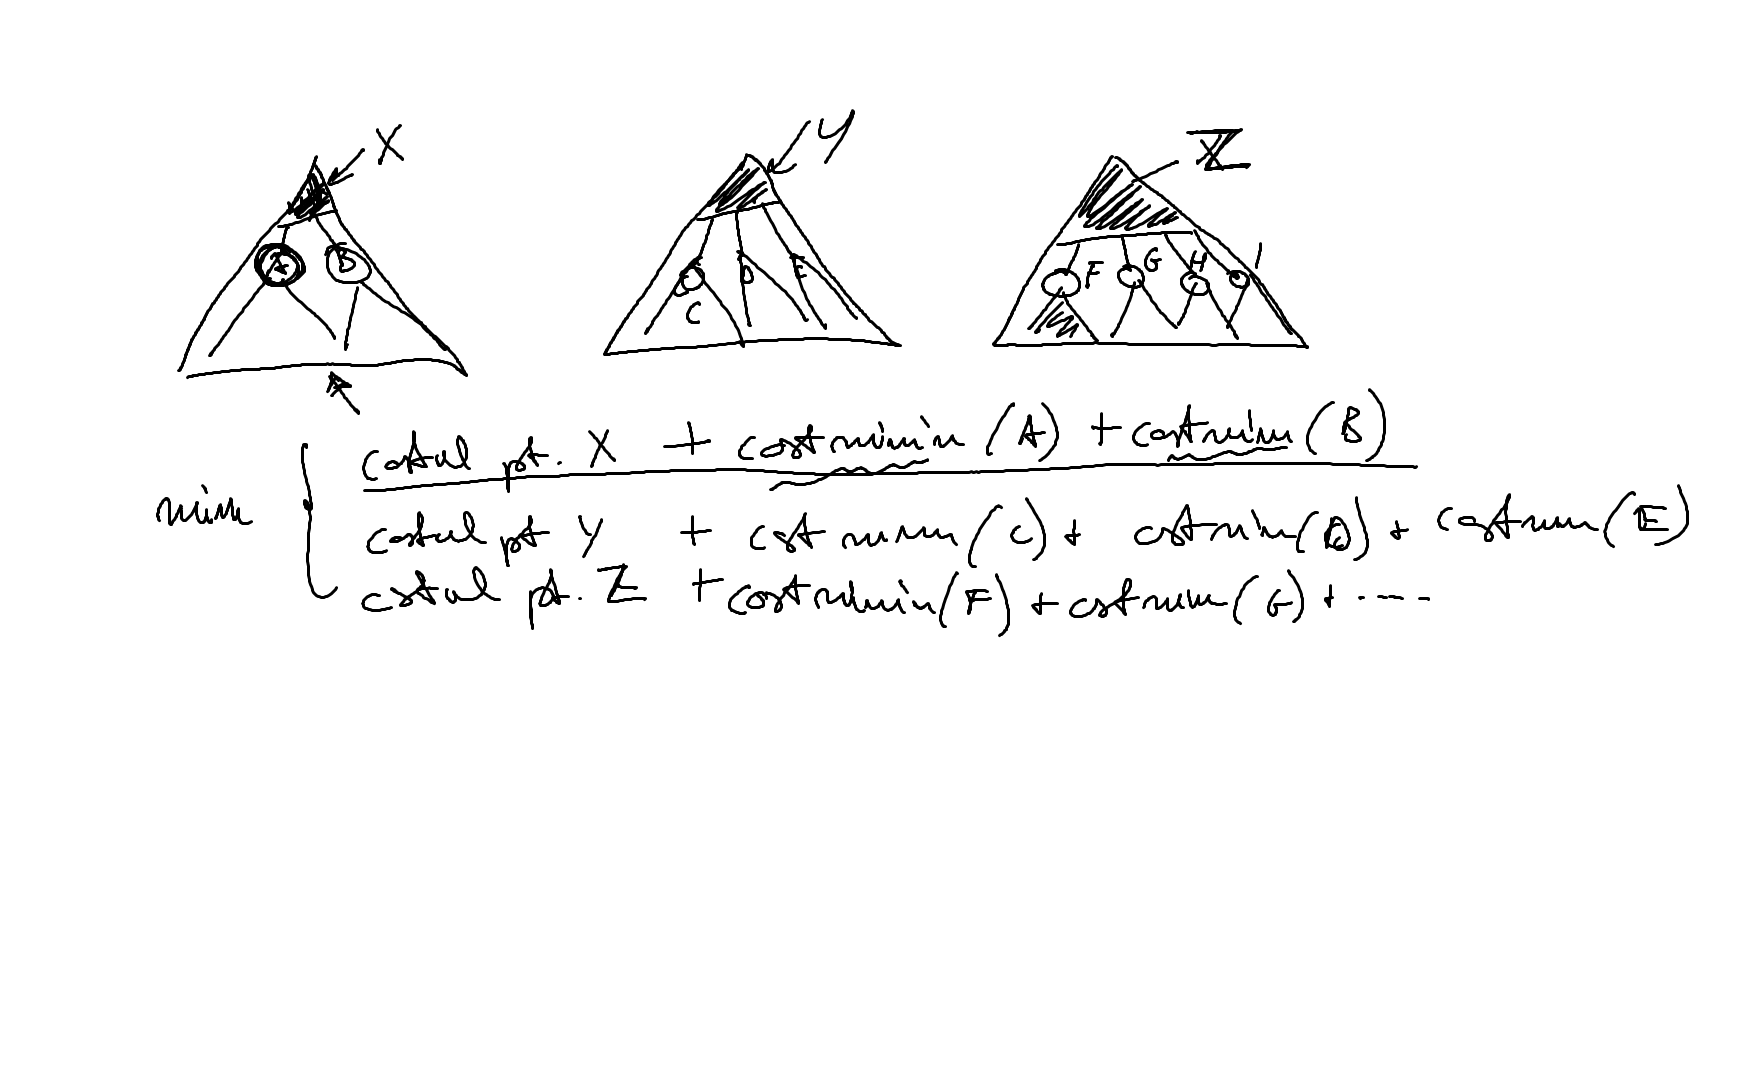 X Y Z
A B C D E F G H I
costul pt. X + cost minim (A) + cost minim (B)
min
costul pt Y + cost minim (C) + cost minim (D) + cost minim (E)
costul pt. Z + cost minim (F) + cost minim (G) + ....